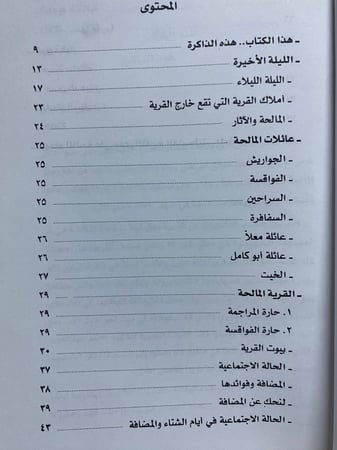 المحتوى
ـ هذا الكتاب.. هذه الذاكرة ٩
ـ الليلة الأخيرة ١٣
ـ الليلة الليلاء ١٧
ـ أملاك القرية التي تقع خارج القرية ٢٣
ـ المالحة والآثار ٢٤
ـ عائلات المالحة ٢٥
ـ الجواريش ٢٥
ـ الفواقسة ٢٥
ـ السراحين ٢٥
ـ السفافرة ٢٥
ـ عائلة معلاً ٢٦
ـ عائلة أبو كامل ٢٦
ـ الخيت ٢٧
ـ القرية المالحة ٢٩
١. حارة المراجمة ٢٩
٢. حارة الفواقسة ٢٩
ـ بيوت القرية ٣٠
ـ الحالة الاجتماعية ٣٧
ـ المضافة وفوائدها ٣٨
ـ لنحك عن المضافة ٣٩
ـ الحالة الاجتماعية في أيام الشتاء والمضافة ٤٣